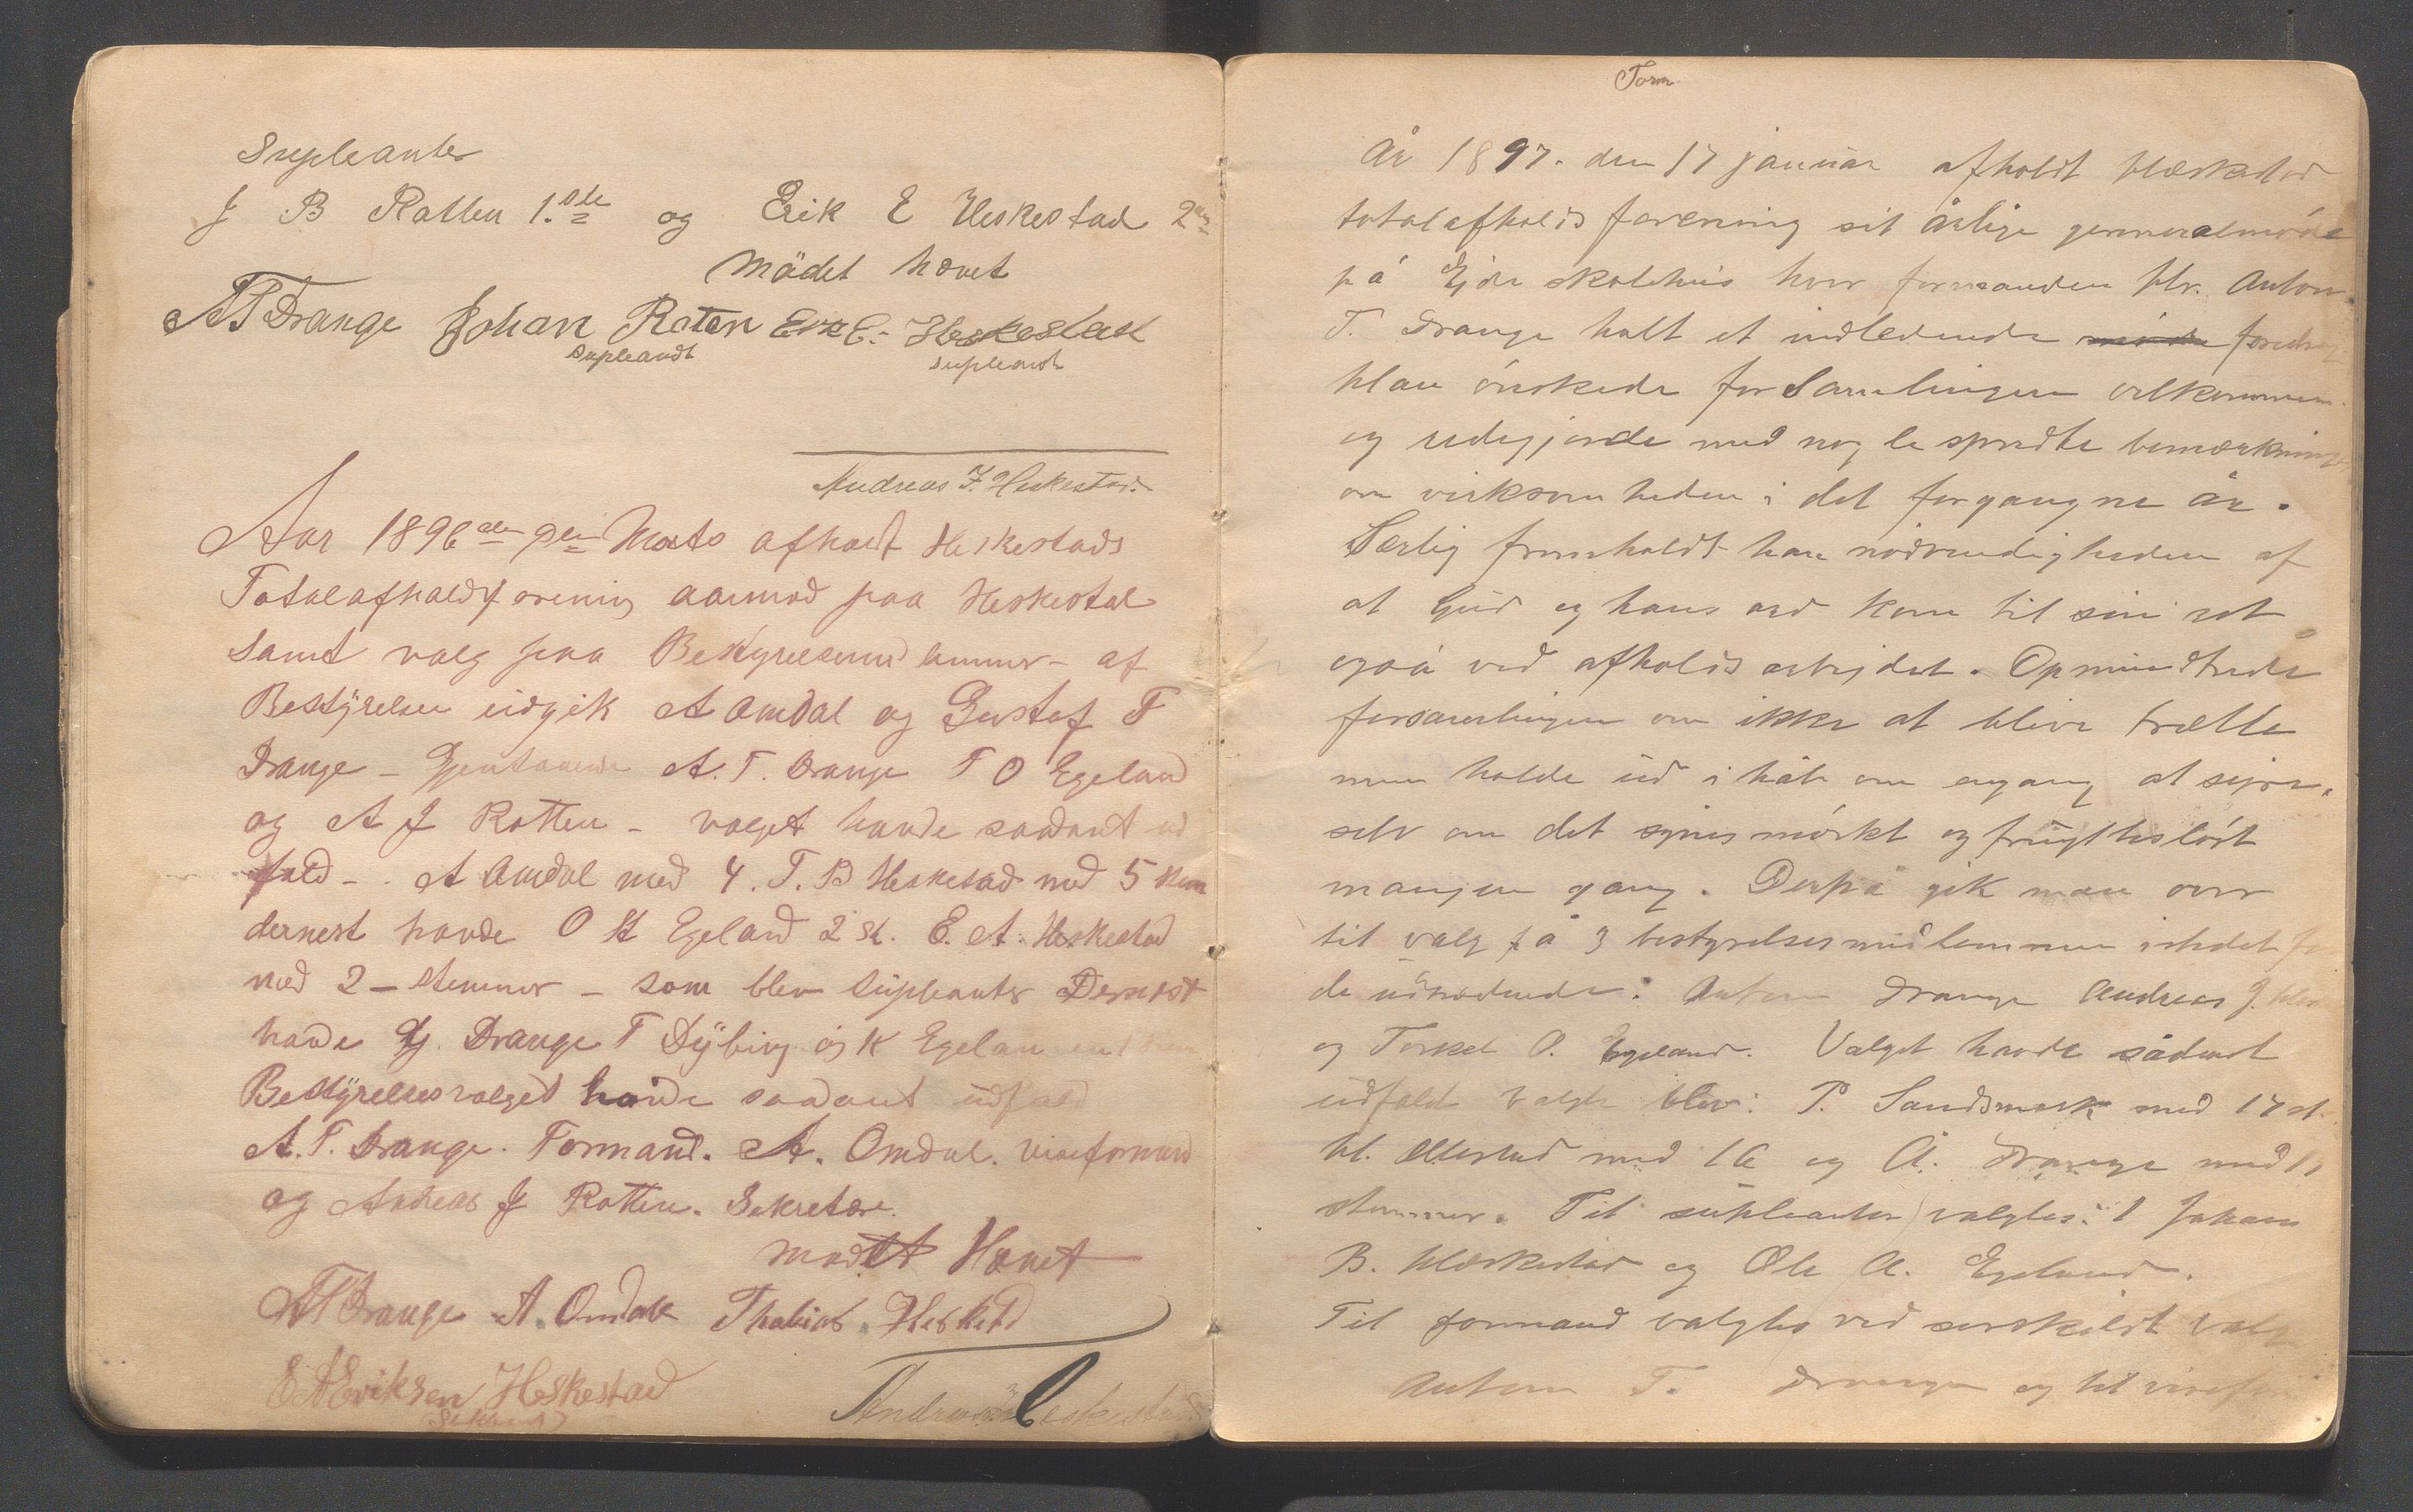 Supleanter
J B Ratten 1.ste og Erik E Heskestad 2den
Mödet hævet
AT Drange Johan Raten Erik E. Heskestad
Supleandt supleandt
Andreas J. Heskestad.
Aar 1896 den 9de Marts afholdt Heskestads
Totalafholdsforening aarmöd paa Heskestad
samt valg paa Bestyrelsesmedlemmer - af
Bestyrelsen udgik A Omdal og Gustaf T
Drange - Gjenstaaende A. T. Drange T O Egeland
og A J Ratten - valget havde saadant ud
fald - . A Omdal med 4. T. B Heskestad med 5 stem
dernest havde O A Egeland 2 st. E. A. Heskestad
med 2 - stemmer - som blev Supleanter Dernest
havde G. Drange T Dybing og K Egeland
Bestyrelsesvalget havde saadant udfald
A. T. Drange. Formand. A. Omdal. viseformand
og Andreas J Ratten. Sekretære.
mødet Hævet
AT Drange A. Omdal Thobias Heskestd
E A Eriksen Heskestad
(Supleant)
Andreas J. Heskestad.
Form
År 1897. den 17 januar afholdt Hæskestad
totalafholds forening sit årlige genneralmöde
på Ejde skolehus hvor formanden Hr. Anton
T. Drange holt et indledende möde foredrag
Han önskede forsamlingen velkommen.
og redegjorde med nogle spredte bemærkninger
om virksomheden i det forgangne år.
Særlig fremholdt han nödvendigheden af
at Gud og hans ord kom til sin ret
også ved afholds arbejdet. Opmundtrede
forsamlingen om ikke at blive trætte
men holde ud i håb om engang at sejre,
selv om det synes mörkt og frugtteslöst
mangen gang. Derpå gik man over
til valg på 3 bestyrelsesmedlemmer istedet for
de udtrædende: Anton Drange Andreas J. Hesk
og Torkel O. Egeland. Valget havde sådant
udfald valgte blev: P. Sandsmark med 17 st.
H. Ollestad med 16 og A. Drange med 11
stemmer. Til supleanter valgtes: 1 Johan
B. Hæskestad og Ole A. Egeland.
Til formand valgtes ved serskildt valg
Anton T. Drange og til visefor